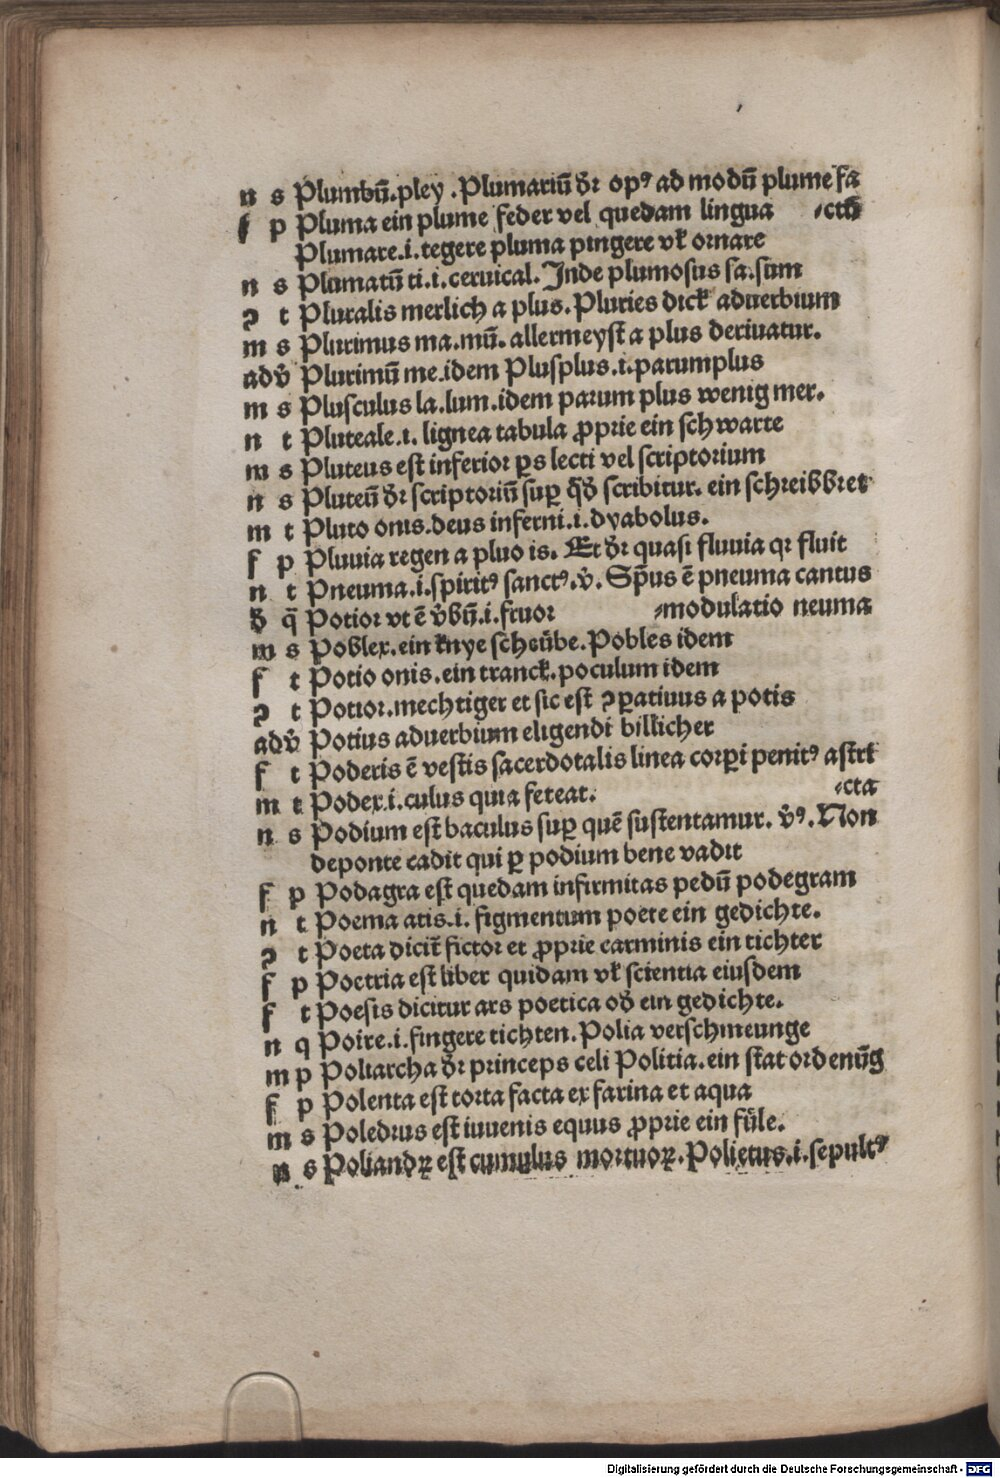 n s Plumbū.pley .Plumariū dr̄ opꝰ ad modū plume fa
f p Pluma ein plume feder vel quedam lingua ⸗ctū
Plumare.i.tegere pluma pingere vł ornare
n s Plumatū ti.i.ceruical.Inde plumosus sa.sum
ꝯ t Pluralis merlich a plus.Pluries dick aduerbium
m s Plurimus ma.mū.allermeyst a plus deriuatur.
adv̄ Plurimū me.idem Plusplus.i.parumplus
m s Plusculus la.lum.idem parum plus wenig mer.
n t Pluteale.i. lignea tabula ꝓprie ein schwarte
m s Pluteus est inferior ꝑs lecti vel scriptorium
n s Pluteū dr̄ scriptoriū suꝑ qd̄ scribitur. ein schreibbret
m t Pluto onis.deus inferni.i.dyabolus.
f p Pluuia regen a pluo is. Et dr̄ quasi fluuia qr fluit
n t Pneuma.i.spiritꝰ sanctꝰ.v̄. Sp̄us ē pneuma cantus
d̄ q̄ Potior vt ē v̄bū.i.fruor ⸗modulatio neuma
m s Poblex.ein knye scheübe.Pobles idem
f t Potio onis.ein tranck.poculum idem
ꝯ t Potior.mechtiger et sic est ꝯꝑatiuus a potis
adv̄ Potius aduerbium eligendi billicher
f t Poderis ē vestis sacerdotalis linea corꝑi penitꝰ astri
m t Podex.i.culus quia feteat. ⸗cta
n s Podium est baculus suꝑ quē sustentamur. v̄ꝰ.Non
deponte cadit qui ꝑ podium bene vadit
f p Podagra est quedam infirmitas pedū podegram
n t Poema atis.i. figmentum poete ein gedichte.
ꝯ t Poeta dicit̄ fictor et ꝓprie carminis ein tichter
f p Poetria est liber quidam vł scientia eiusdem
f t Poesis dicitur ars poetica od̄ ein gedichte.
n q Poire.i.fingere tichten.Polia verschmeunge
m p Poliarcha dr̄ princeps celi Politia.ein stat ordenūg
f p Polenta est torta facta ex farina et aqua
m s Poledrus est iuuenis equus ꝓprie ein füle.
n s Poliandꝝ est cumulus mortuoꝝ.Polietus.i.sepultꝰ
Digitalisierung gefördert durch die Deutsche Forschungsgemeinschaft - DFG